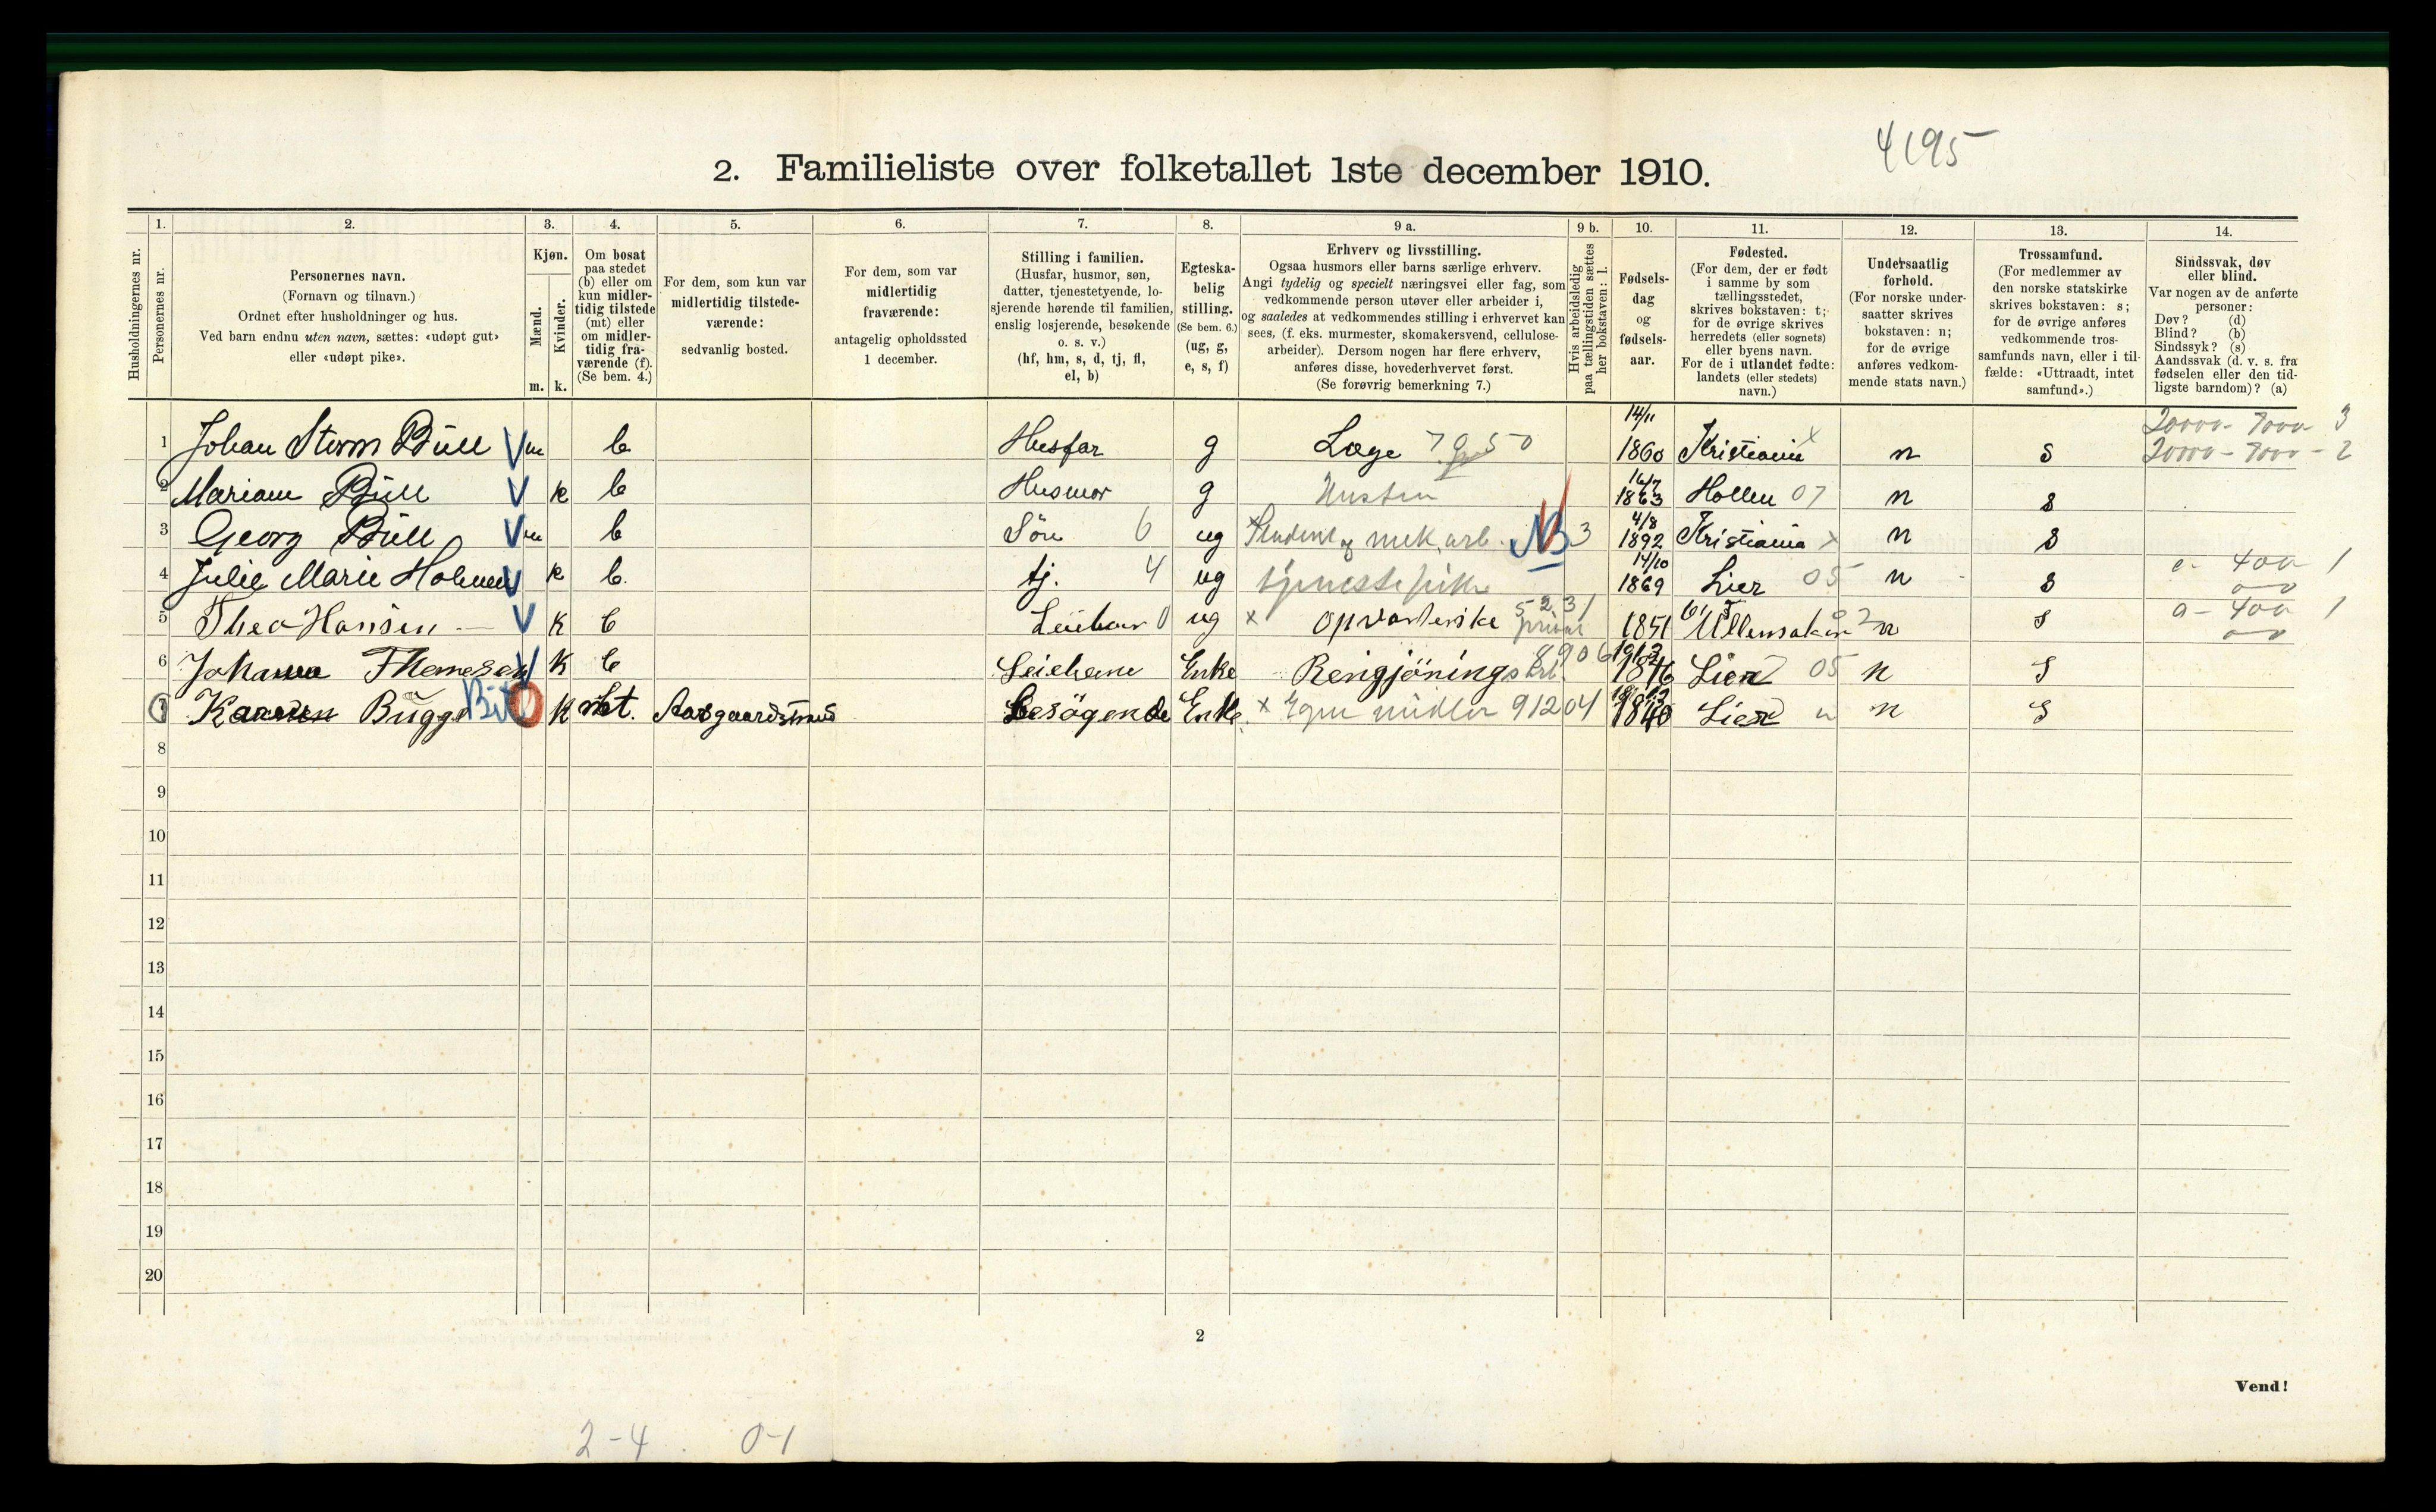 4195
2. Familieliste over folketallet 1ste december 1910.
1. 2. 3. 4. 5. 6. 7. 8. 9 a. 9 b. 10. 11. 12. 13. 14.
Husholdningernes nr.
Personernes nr.
Personernes navn.
(Fornavn og tilnavn.)
Ordnet efter husholdninger og hus.
Ved barn endnu uten navn, sættes: «udøpt gut»
eller «udøpt pike».
Kjøn.
Mænd.
Kvinder.
m. k.
Om bosat
paa stedet
(b) eller om
kun midler-
tidig tilstede
(mt) eller
om midler-
tidig fra-
værende (f).
(Se bem. 4.)
For dem, som kun var
midlertidig tilstede-
værende:
sedvanlig bosted.
For dem, som var
midlertidig
fraværende:
antagelig opholdssted
1 december.
Stilling i familien.
(Husfar, husmor, søn,
datter, tjenestetyende, lo-
sjerende hørende til familien,
enslig losjerende, besøkende
o. s. v.)
(hf, hm, s, d, tj, fl,
el, b)
Egteska-
belig
stilling.
(Se bem. 6.)
(ug, g,
e, s, f)
Erhverv og livsstilling.
Ogsaa husmors eller barns særlige erhverv.
Angi tydelig og specielt næringsvei eller fag, som
vedkommende person utøver eller arbeider i,
og saaledes at vedkommendes stilling i erhvervet kan
sees, (f. eks. murmester, skomakersvend, cellulose-
arbeider). Dersom nogen har flere erhverv,
anføres disse, hovederhvervet først.
(Se forøvrig bemerkning 7.)
Hvis arbeidsledig
paa tællingstiden sættes
her bokstaven: l.
Fødsels-
dag
og
fødsels-
aar.
Fødested.
(For dem, der er født
i samme by som
tællingsstedet,
skrives bokstaven: t;
for de øvrige skrives
herredets (eller sognets)
eller byens navn.
For de i utlandet fødte:
landets (eller stedets)
navn.)
Undersaatlig
forhold.
(For norske under-
saatter skrives
bokstaven: n;
for de øvrige
anføres vedkom-
mende stats navn.)
Trossamfund.
(For medlemmer av
den norske statskirke
skrives bokstaven: s;
for de øvrige anføres
vedkommende tros-
samfunds navn, eller i til-
fælde: «Uttraadt, intet
samfund».)
Sindssvak, døv
eller blind.
Var nogen av de anførte
personer:
Døv? (d)
Blind? (b)
Sindssyk? (s)
Aandssvak (d. v. s. fra
fødselen eller den tid-
ligste barndom)? (a)
1 Johan Storm Bull V m b Husfar g Læge 14/11 1860 Kristiania x n s 20000 - 7000 3
20000 - 7000 - 2
2 Mariane Bull V k b Husmor g Hustru 16/7 1863 Hollen 07 n s
3 Georg Bull V m b Sön 6 ug Student og mek. arb. NB 3 4/8 1892 Kristiania x n s
4 Julie Marie Holmen V k b. tj. 4 ug tjenestepike 14/10 1869 Lier 05 n s 400 1
5 Thea Hansen V K b 0 ug x Opvarterske privat 5231 1851 Ullensaker n s 400 1
6 Johanna V K b Leieboer Enke Rengjörings arb. 8906 Lier 05 n S
7 Bugge K mt. Aasgaardstrand Besøgende Enke x Egne midler 91204 1840 Lier n S
8
9
10
11
12
13
14
15
16
17
18
19
20
2
Vend!
2-4. 0-1